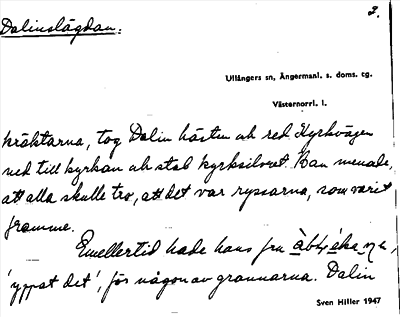 2.
Dalinslägdan.
Ullångers sn, Ångermanl. s. doms. cg.
Västernorrl. l.
kräktarna, tog Dalin hästen och red Kyrkvägen
ned till kyrkan och stal kyrksilvret. Han menade,
att alla skulle tro, att det var ryssarna, som varit
framme.
Emellertid hade hans fru
'yppat det', för någon av grannarna. Dalin
Sven Hiller 1947